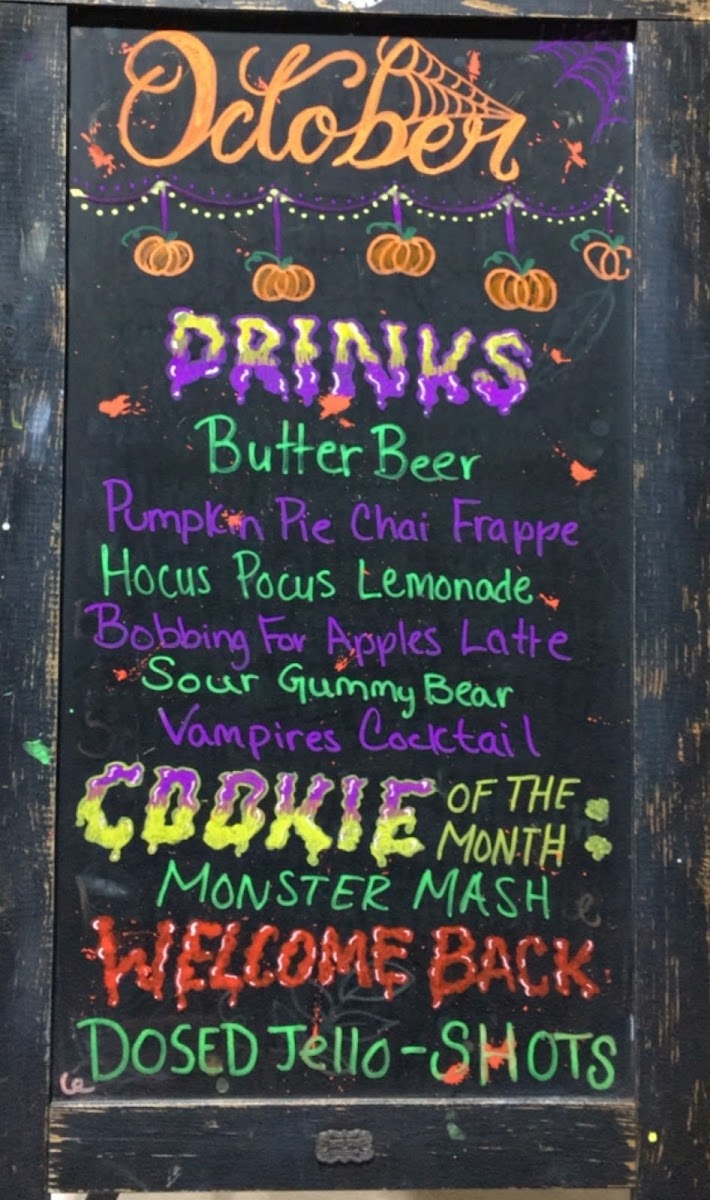 October
DRINKS
Butter Beer
Pumpkin Pie Chai Frappe
Hocus Pocus Lemonade
Bobbing For Apples Latte
Sour Gummy Bear
Vampires Cocktail
COOKIE OF THE
MONTH :
MONSTER MASH
WELCOME BACK
DOSED Jello-SHOTS